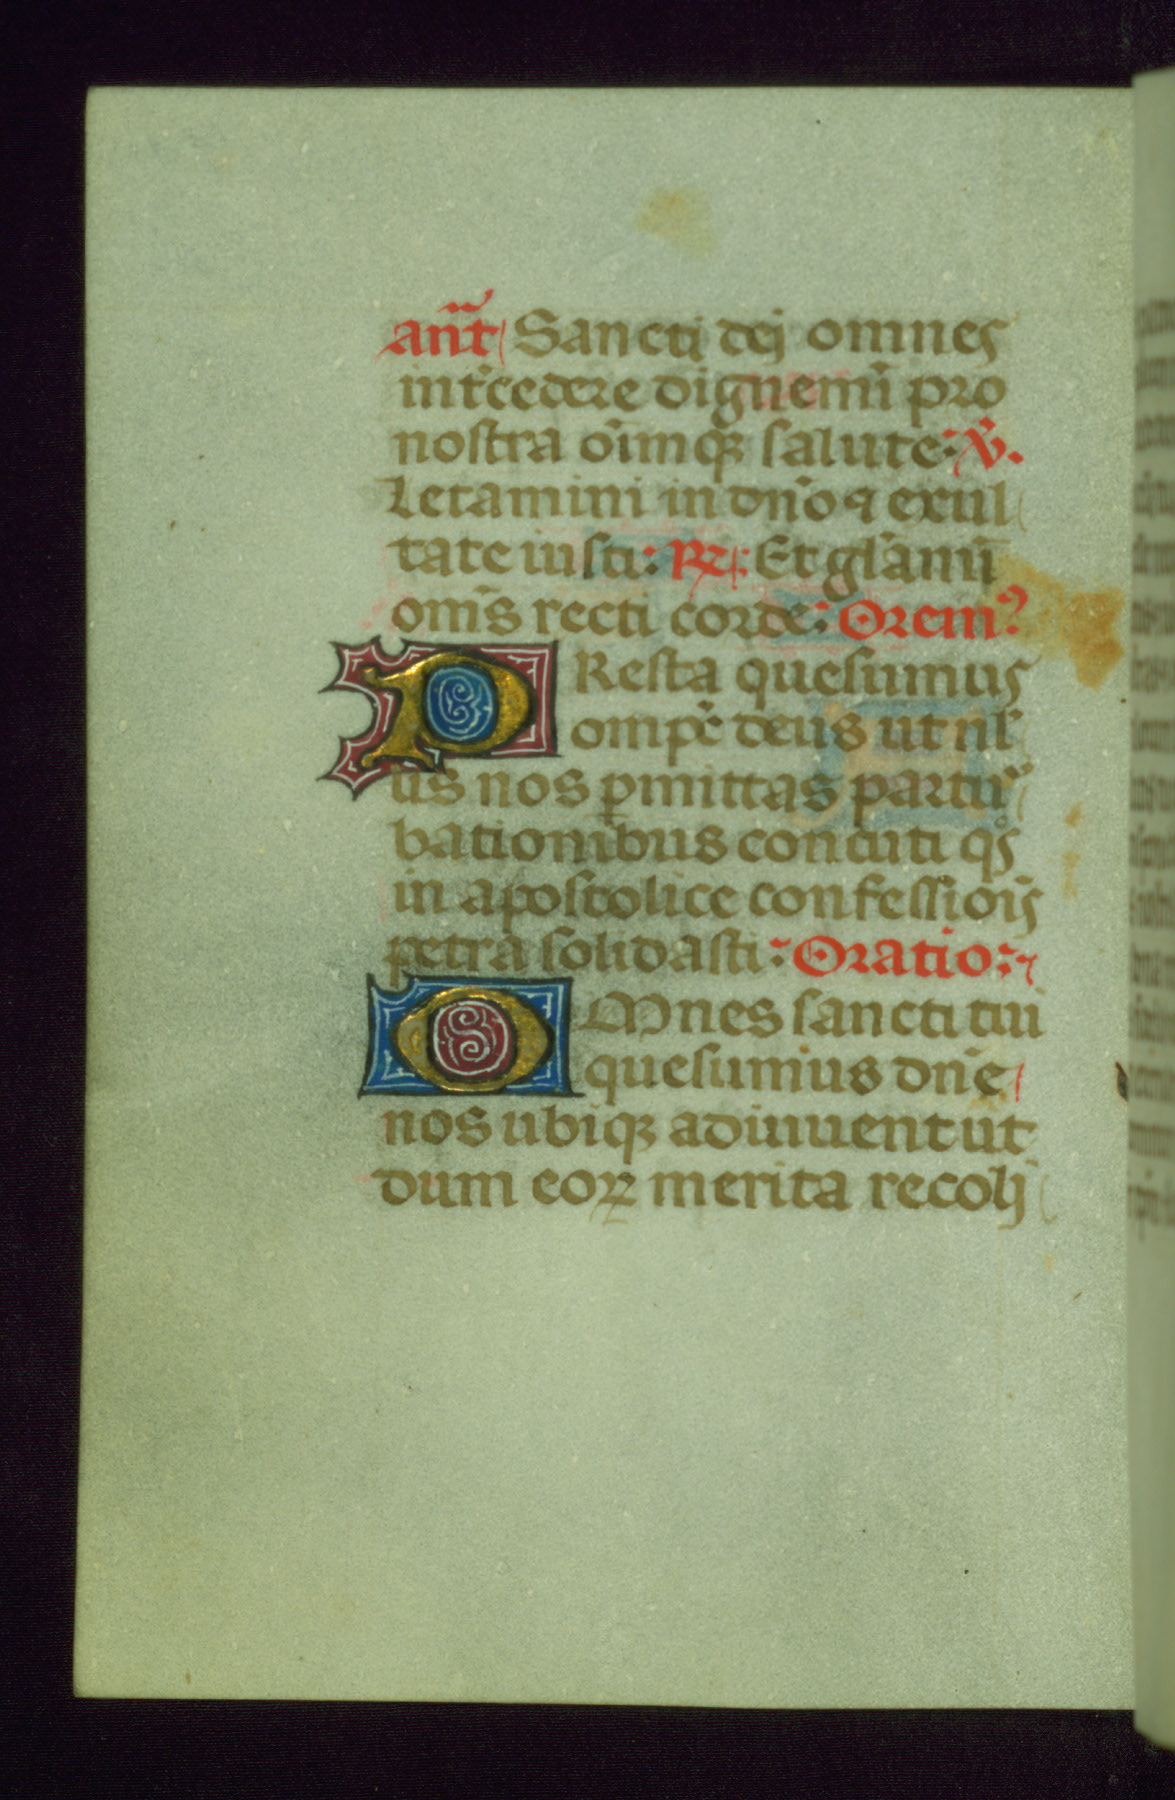 Ant̃ Sancti dei omnes
int̾cedere dignemĩ pro
nostra oĩmqꝫ salute: ꝟ.
Letamini in dño ⁊ exul
tate iusti: ℞: Et gl̃amĩ
om̃s recti corde: Orem̾
PResta quesumus
omp̃c deus ut nl̃
lis nos ꝑmittas partu
bationibus concuti q̾s
in apostolice confessiõis
petra solidasti: Oratio:
OMnes sancti tui
quesumus dñe
nos ubiqꝫ adiuuent ut
dum eoꝝ merita recoli